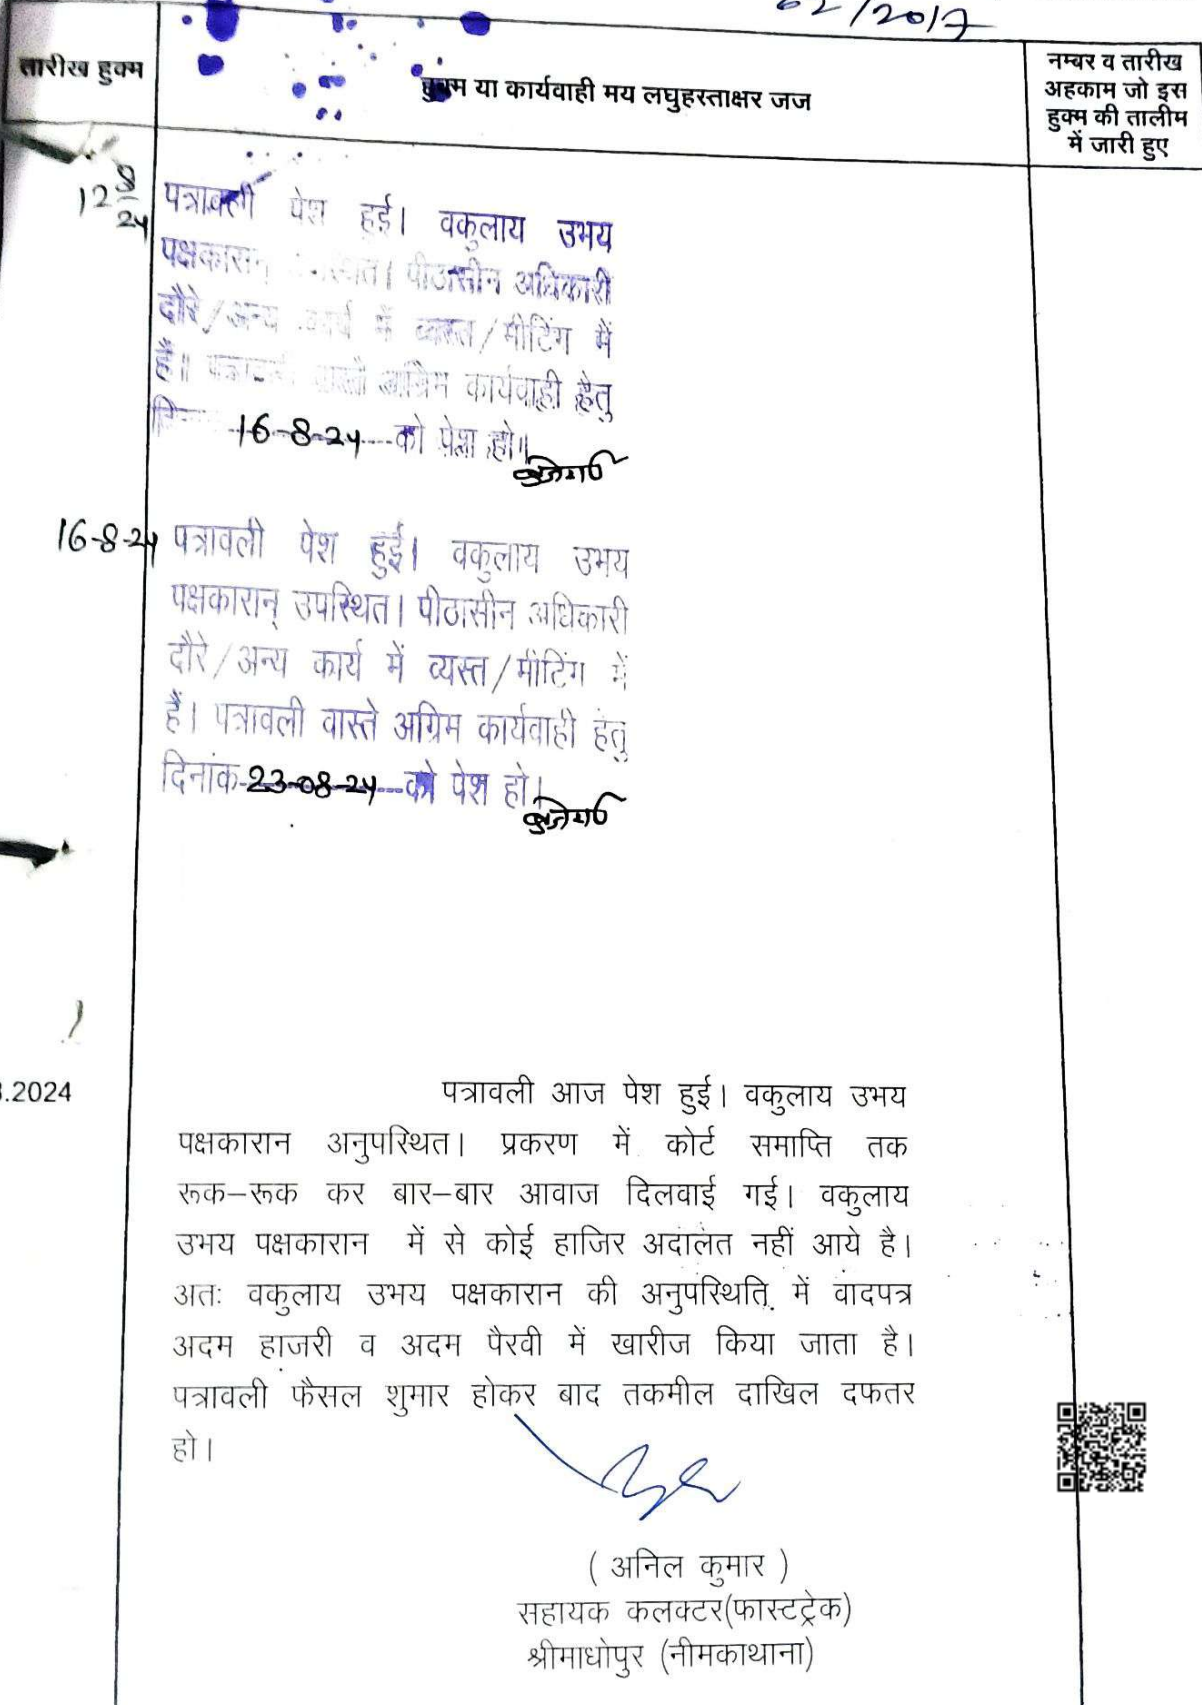 62/2017
तारीख हुक्म
हुक्म या कार्यवाही मय लघुहस्ताक्षर जज
नम्बर व तारीख
अहकाम जो इस
हुक्म की तालीम
में जारी हुए
12 8/24
पत्रावली पेश हुई। वकुलाय उभय
पक्षकारान् पीठासीन अधिकारी
दौरे/अन्य कार्य में व्यस्त/मीटिंग में
हैं। अग्रिम कार्यवाही हेतु
16-8-24 को पेश हो।
16-8-24
पत्रावली पेश हुई। वकुलाय उभय
पक्षकारान् उपस्थित। पीठासीन अधिकारी
दौरे/अन्य कार्य में व्यस्त/मीटिंग में
हैं। पत्रावली वास्ते अग्रिम कार्यवाही हेतु
दिनांक 23-08-24 को पेश हो।
.2024
पत्रावली आज पेश हुई। वकुलाय उभय
पक्षकारान अनुपस्थित। प्रकरण में कोर्ट समाप्ति तक
रूक–रूक कर बार–बार आवाज दिलवाई गई। वकुलाय
उभय पक्षकारान में से कोई हाजिर अदालत नहीं आये है।
अतः वकुलाय उभय पक्षकारान की अनुपस्थिति में वादपत्र
अदम हाजरी व अदम पैरवी में खारीज किया जाता है।
पत्रावली फैसल शुमार होकर बाद तकमील दाखिल दफतर
हो।
( अनिल कुमार )
सहायक कलक्टर(फास्टट्रेक)
श्रीमाधोपुर (नीमकाथाना)